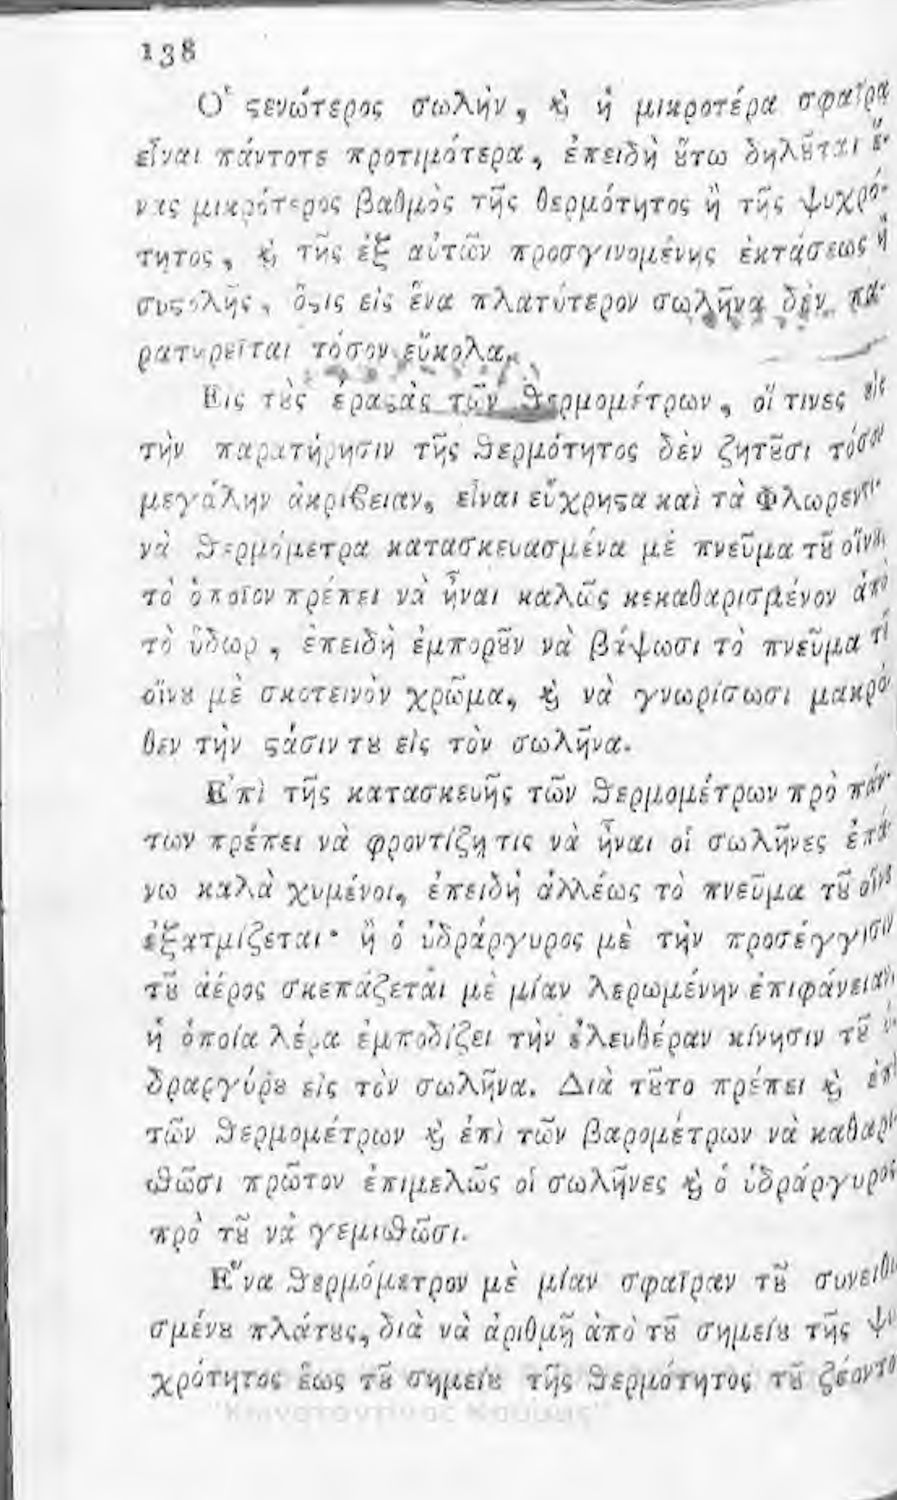 138
Ὁ ϛενώτερος σωλὴν, ϗ ἡ μικροτέρα σφαῖρα
εἶναι πάντοτε προτιμότερα, ἐπειδὴ ȣ̔́τω δηλȣ͂ται ἕ-
νας μικρότερος βαθμὸς τῆς θερμότητος ἢ τῆς ψυχρό-
τητος, ϗ τῆς ἐξ αὐτῶν προσγινομένης ἐκτάσεως ἢ
συϛολῆς, ὅϛις εἰς ἕνα πλατύτερον σωλῆνα δὲν πα-
ρατηρεῖται τόσον εὔκολα.
Εἰς τȣ̀ς ἐραϛὰς τῶν ϑερμομέτρων, οἵ τινες εἰς
τὴν παρατήρησιν τῆς ϑερμότητος δὲν ζητȣ͂σι τόσον
μεγάλην ἀκρίβειαν, εἶναι εὔχρηϛα καὶ τὰ Φλωρεντι-
νὰ ϑερμόμετρα κατασκευασμένα μὲ πνεῦμα τȣ͂ οἴνȣ,
τὸ ὁποῖον πρέπει νὰ ἦναι καλῶς κεκαθαρισμένον ἀπὸ
τὸ ὕδωρ, ἐπειδὴ ἐμπορȣ͂ν νὰ βάψωσι τὸ πνεῦμα τȣ͂
οἴνȣ μὲ σκοτεινὸν χρῶμα, ϗ νὰ γνωρίσωσι μακρό-
θεν τὴν ϛάσιν τȣ εἰς τὸν σωλῆνα.
Ἐπὶ τῆς κατασκευῆς τῶν ϑερμομέτρων πρὸ πάν-
των πρέπει νὰ φροντίζῃ τις νὰ ἦναι οἱ σωλῆνες ἐπά-
νω καλὰ χυμένοι, ἐπειδὴ ἀλλέως τὸ πνεῦμα τȣ͂ οἴνȣ
ἐξατμίζεται· ἢ ὁ ὑδράργυρος μὲ τὴν προσέγγισιν
τȣ͂ ἀέρος σκεπάζεται μὲ μίαν λερωμένην ἐπιφάνειαν,
ἡ ὁποία λέρα ἐμποδίζει τὴν ἐλευθέραν κίνησιν τȣ͂ ὑ-
δραργύρȣ εἰς τὸν σωλῆνα. Διὰ τȣ͂το πρέπει ϗ ἐπὶ
τῶν ϑερμομέτρων ϗ ἐπὶ τῶν βαρομέτρων νὰ καθαρι-
σϑῶσι πρῶτον ἐπιμελῶς οἱ σωλῆνες ϗ ὁ ὑδράργυρος
πρὸ τȣ͂ νὰ γεμισϑῶσι.
Ἕνα ϑερμόμετρον μὲ μίαν σφαῖραν τȣ͂ συνειθι-
σμένȣ πλάτȣς, διὰ νὰ ἀριθμῇ ἀπὸ τȣ͂ σημείȣ τῆς ψυ-
χρότητος ἕως τȣ͂ σημείȣ τῆς ϑερμότητος τȣ͂ ζέοντο